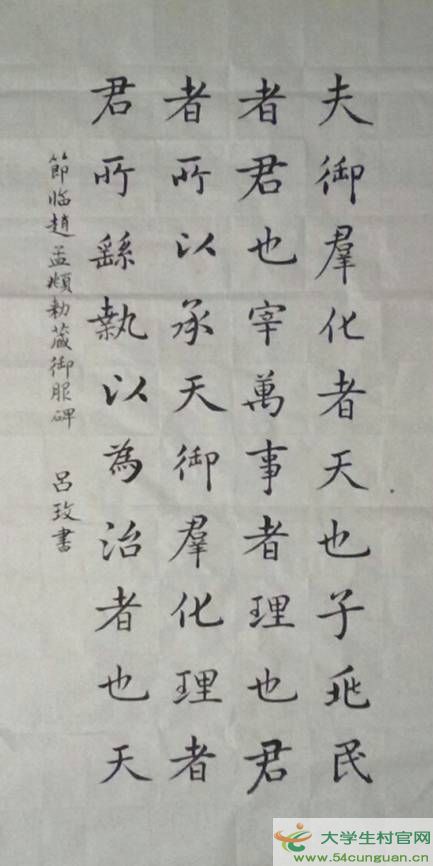 夫御羣化者天也子兆民
者君也宰萬事者理也君
者所以承天御羣化理者
君所繇執以為治者也天
節臨趙孟頫勅藏御服碑 呂玫書
大学生村官网
www.54cunguan.cn